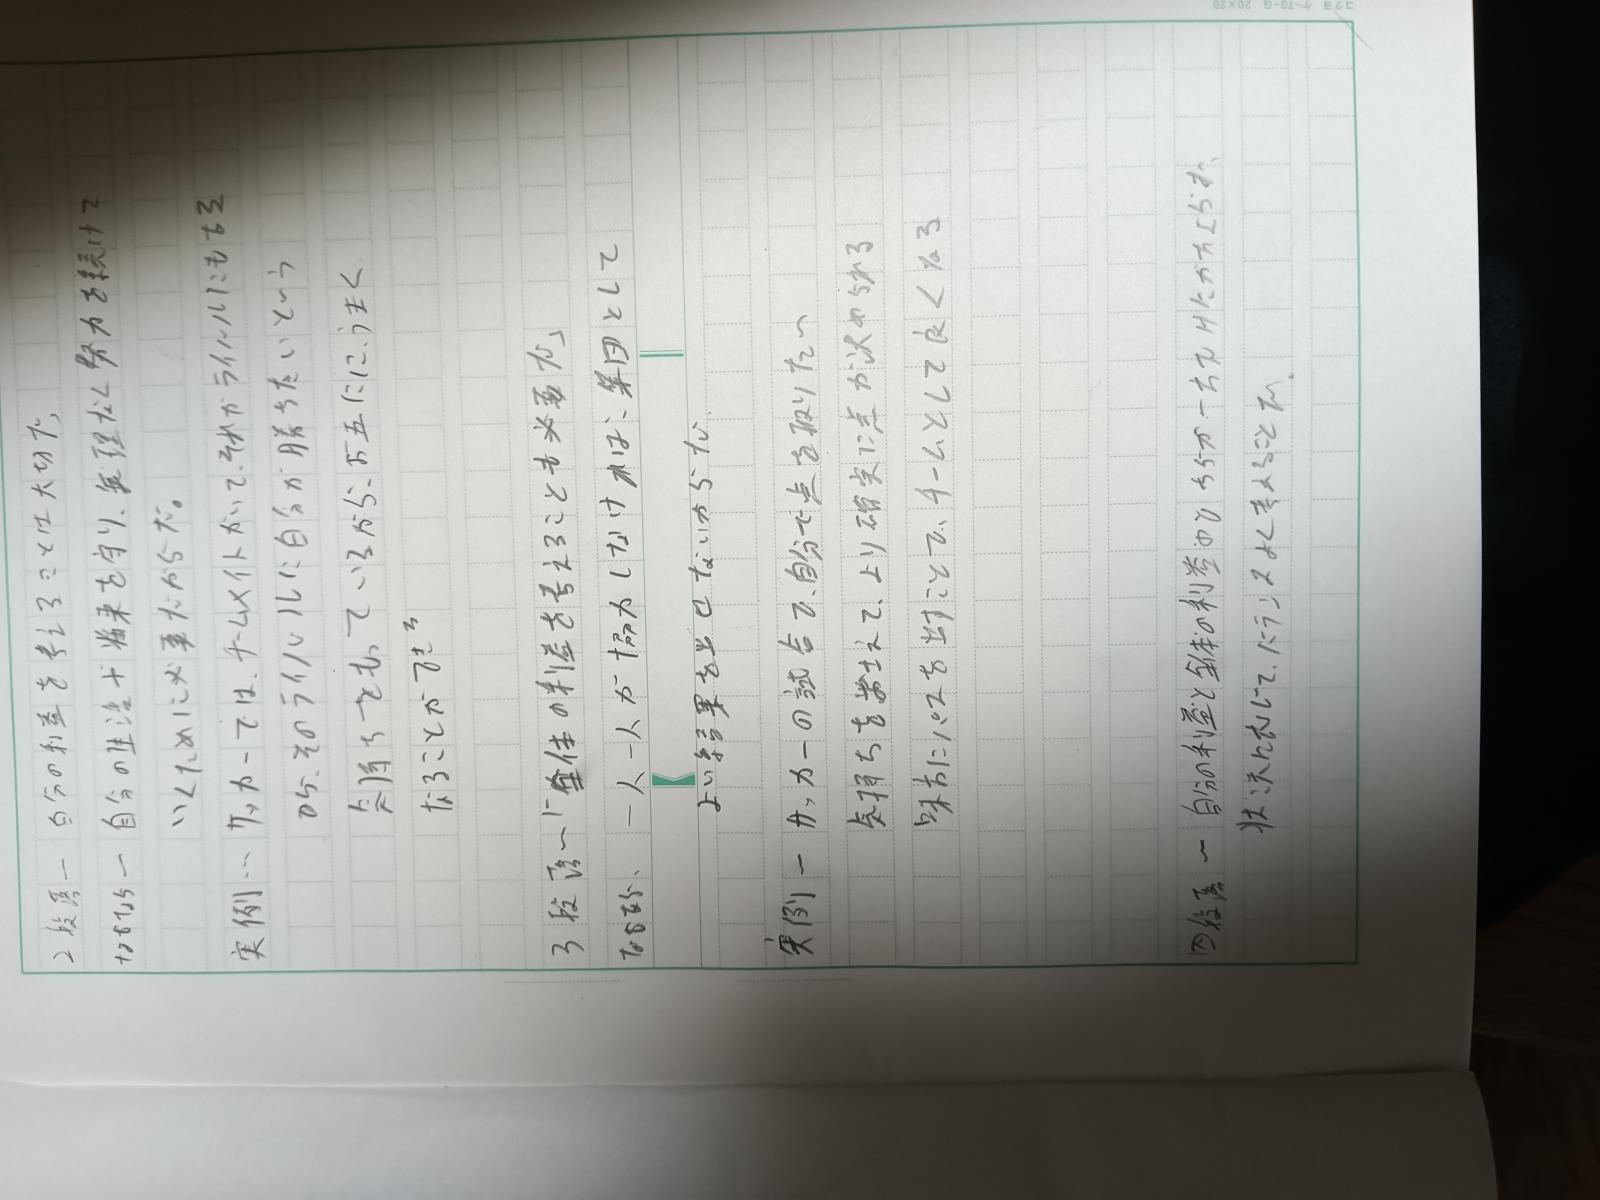 2段落ー 自分の利益を考えることは大切だ。
なぜなら一 自分の生活や将来を守り、無理なく努力を続けて
いくために必要だからだ。
実例… サッカーでは、チームメイトがいて、それがライバルにもなる
から、そのライバルに自分が勝ちたいという
気持ちをもっているから、お互いに、うまく
なることができる
3段落ー「全体の利益を考えることも必要だ」
なぜなら、一人一人が協力しなければ、集団として
よい結果を出せないからだ。
実例ー サッカーの試合で、自分で点を取りたい
気持ちを抑えて、より確実に点が決められる
味方にパスを出すことで、チームとして良くなる
四段落ー 自分の利益と全体の利益のどちらか一方だけにかたよらず、
状況に応じて、バランスよく考えることだ。
コクヨ ケ-70-G 20×20